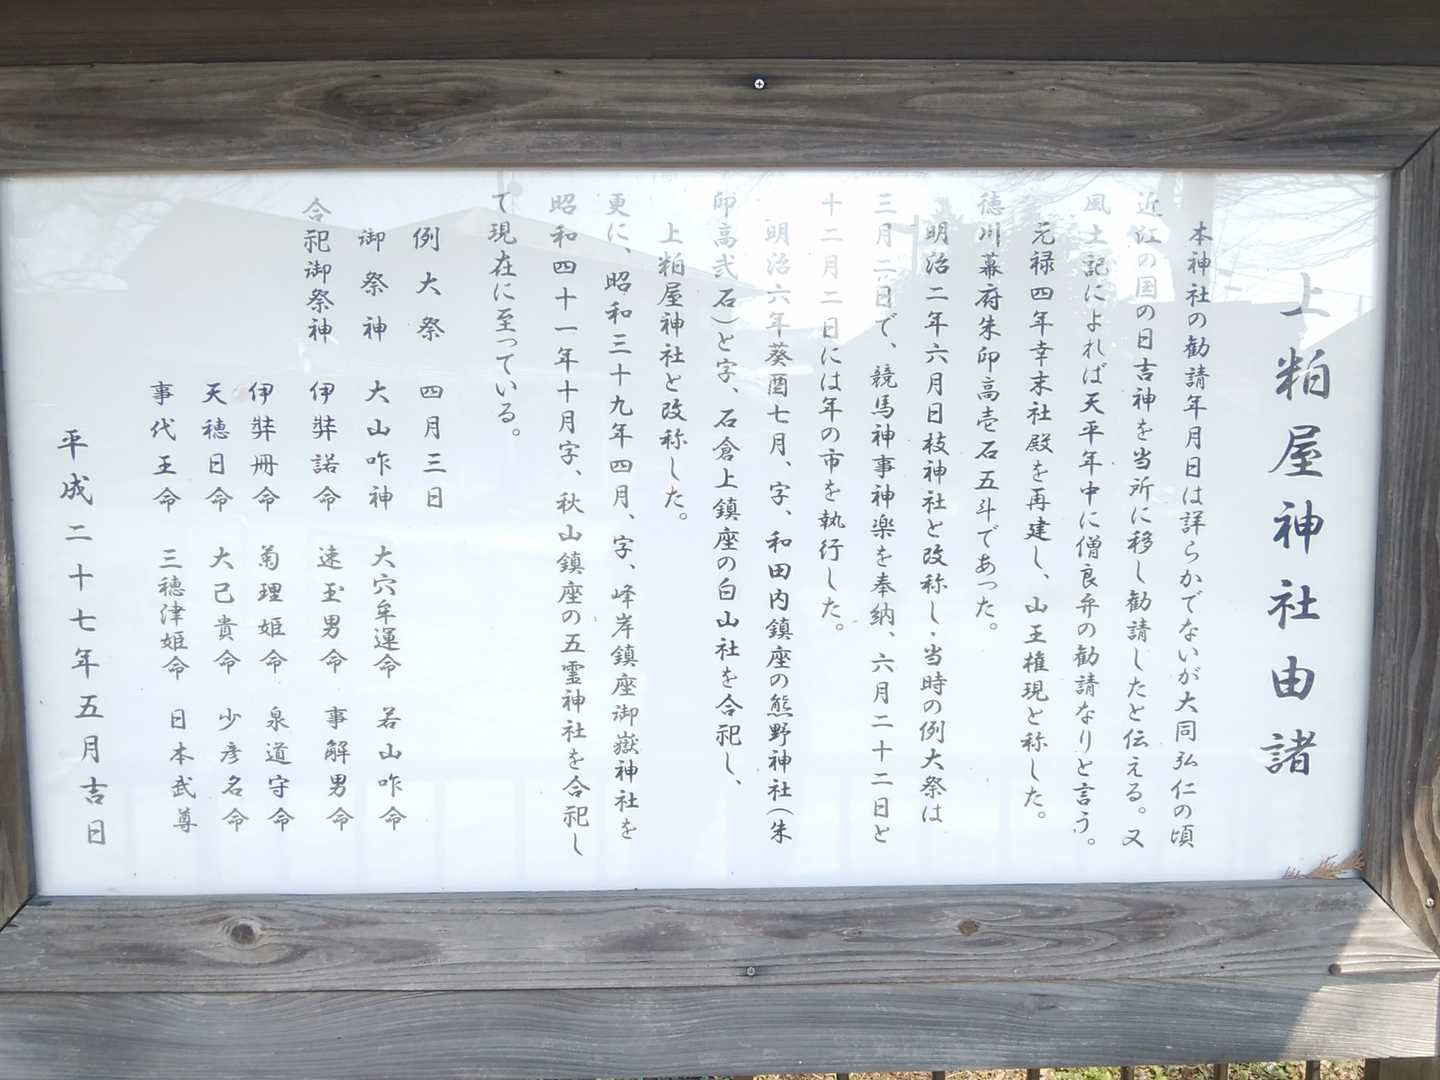 上粕屋神社由諸
本神社の勧請年月日は詳らかでないが大同弘仁の頃
近江の国の日吉神を当所に移し勧請したと伝える。又
風土記によれば天平年中に僧良弁の勧請なりと言う。
元禄四年幸末社殿を再建し、山王権現と称した。
徳川幕府朱印高壱石五斗であった。
明治二年六月日枝神社と改称し・当時の例大祭は
三月二日で、競馬神事神楽を奉納、六月二十二日と
十二月二日には年の市を執行した。
明治六年葵酉七月、字、和田内鎮座の熊野神社(朱
印高弐石)と字、石倉上鎮座の白山社を合祀し、
上粕屋神社と改称した。
更に、昭和三十九年四月、字、峰岸鎮座御嶽神社を
昭和四十一年十月字、秋山鎮座の五霊神社を合祀し
て現在に至っている。
例大祭 四月三日
御祭神 大山咋神 大穴牟運命 若山咋命
合祀御祭神 伊弉諾命 速玉男命 事解男命
伊弉冊命 菊理姫命 泉道守命
天穂日命 大己貴命 少彦名命
事代王命 三穂津姫命 日本武尊
平成二十七年五月吉日